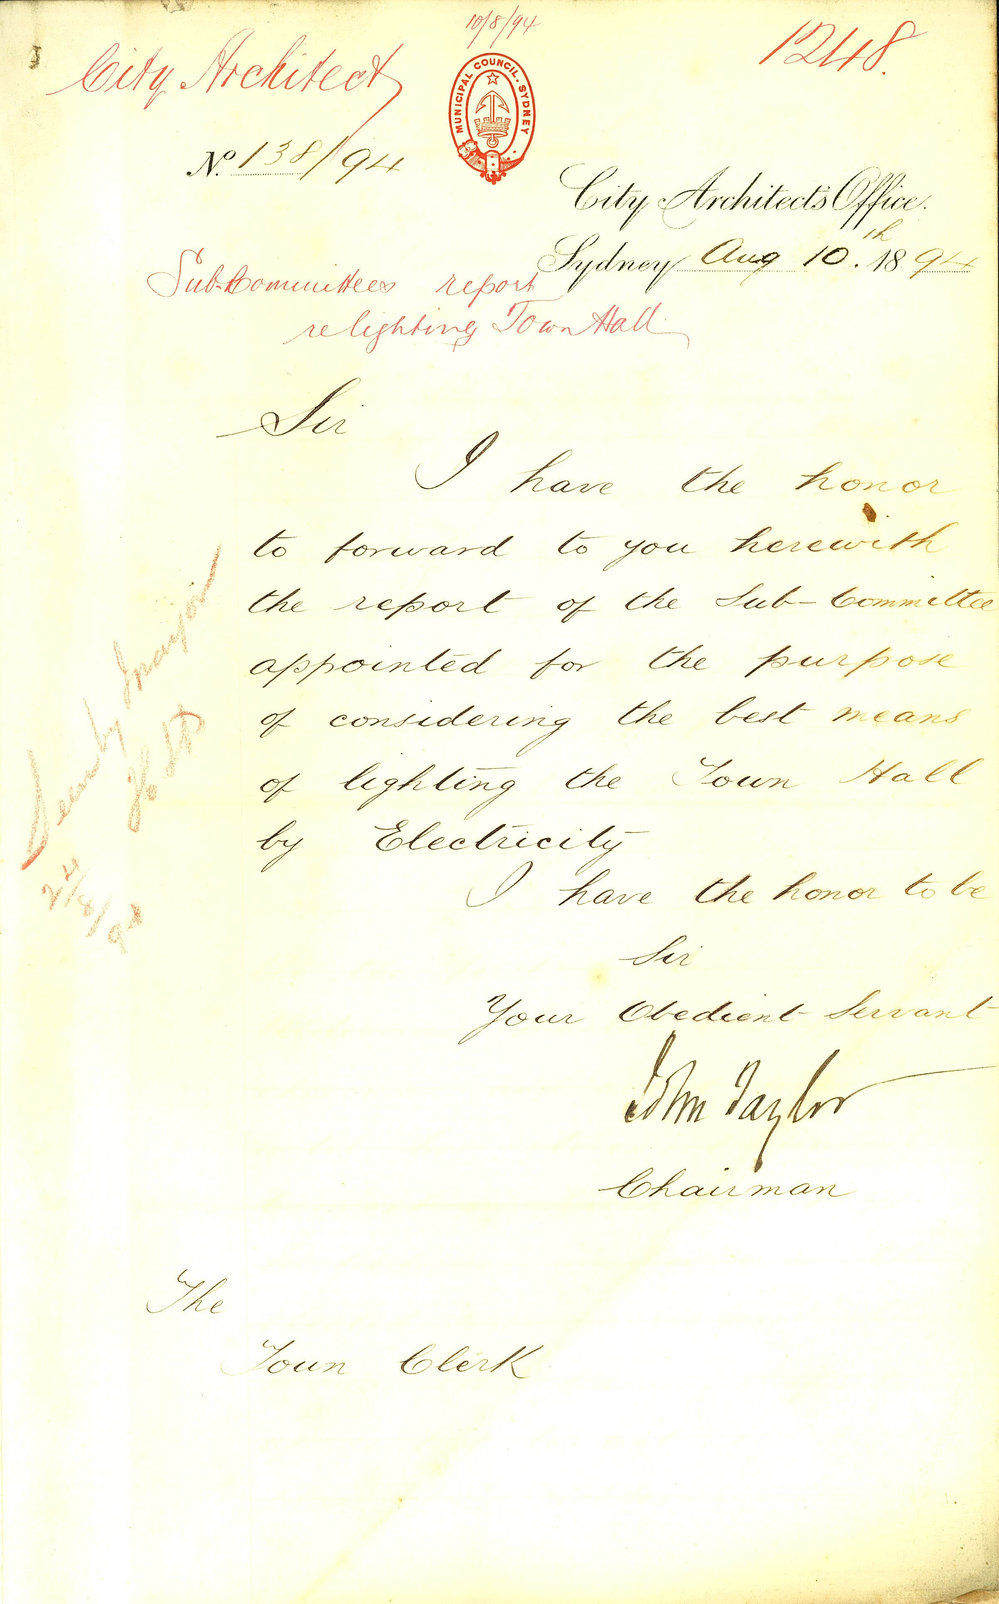 10/8/94
City Architect
1248.
MUNICIPAL COUNCIL. SYDNEY
No. 138/94
City Architect's Office.
Sydney Aug 10.th 1894
Sub-Committees report
re lighting Town Hall
Sir
I have the honor
to forward to you herewith
the report of the Sub-Committee
appointed for the purpose
of considering the best means
of lighting the Town Hall
by Electricity
I have the honor to be
Sir
Your Obedient Servant
John Taylor
Chairman
The
Town Clerk
Seen by Mayor
24/8/94